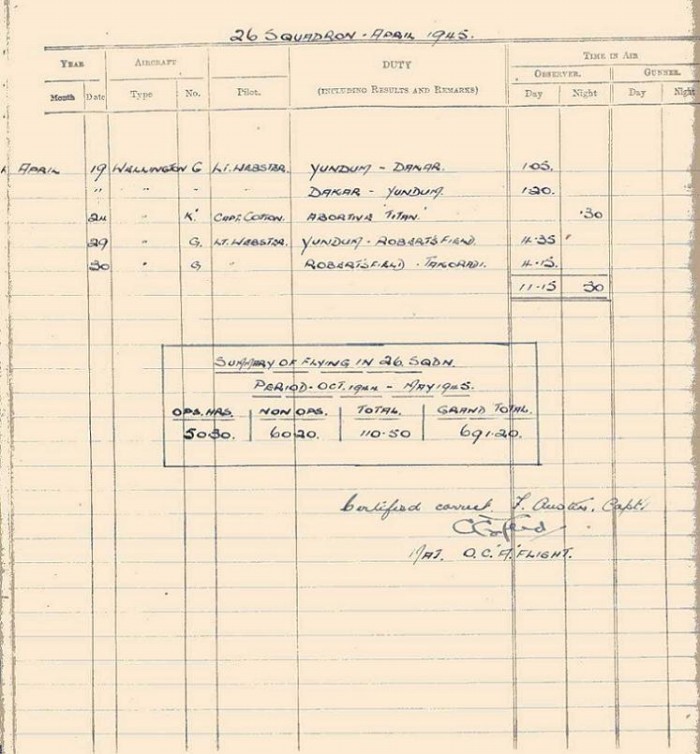 26 SQUADRON - APRIL 1945.
YEAR AIRCRAFT DUTY TIME IN AIR
OBSERVER. GUNNER.
Month Date Type No. Pilot. (INCLUDING RESULTS AND REMARKS) Day Night Day Night
APRIL 19 WELLINGTON G LT. WEBSTER. YUNDUM - DAKAR. 1.05.
" " - " DAKAR - YUNDUM. 1.20.
24 " 'K' CAPT. COTTON. ABORTIVE 'TITAN' .30
29 " G. LT. WEBSTER. YUNDUM - ROBERTSFIELD. 4.35
30 " G " ROBERTSFIELD - TAKORADI. 4.15.
11.15 30
SUMMARY OF FLYING IN 26. SQDN.
PERIOD - OCT. 1944 - MAY 1945.
OPS. HRS. NON OPS. TOTAL. GRAND TOTAL.
50.30. 60.20. 110.50 691.20.
Certified correct. F. Austin. Capt.
MAJ. O.C. 'A' FLIGHT.